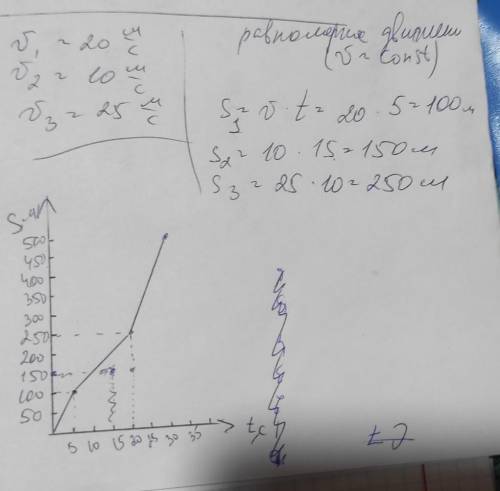 v₁ = 20 м/с
v₂ = 10 м/с
v₃ = 25 м/с
равномерное движени
(v = const)
S₁ = v · t = 20 · 5 = 100 м
S₂ = 10 · 15 = 150 м
S₃ = 25 · 10 = 250 м
S, м
500
450
400
350
300
250
200
150
100
50
5 10 15 20 25 30 35
t, с